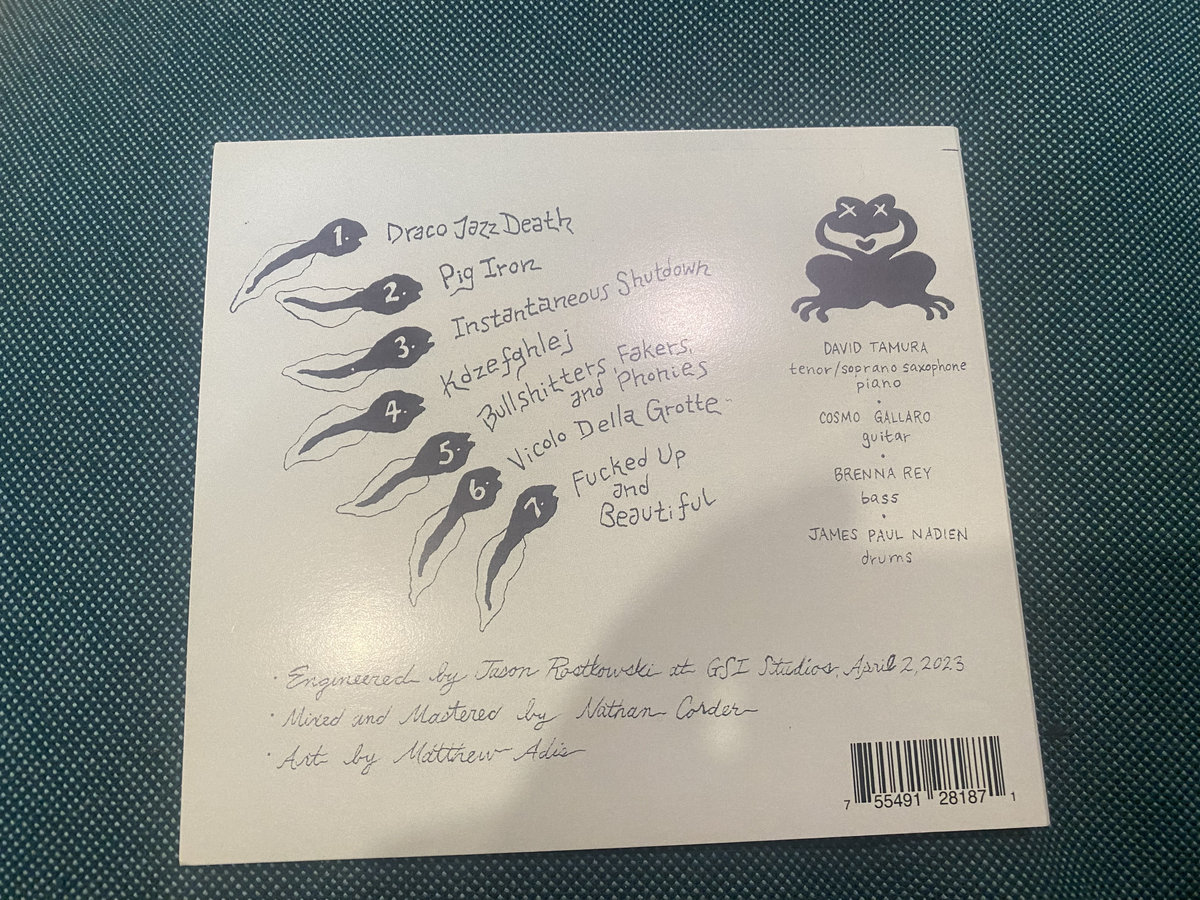 1. Draco Jazz Death
2. Pig Iron
3. Instantaneous Shutdown
4. Kdzefghlej
5. Bullshitters, Fakers,
and Phonies
6. Vicolo Della Grotte
7. Fucked Up
and
Beautiful
DAVID TAMURA
tenor/soprano saxophone
piano
COSMO GALLARO
guitar
BRENNA REY
bass
JAMES PAUL NADIEN
drums
· Engineered by Jason Rostkowski at GSI Studios, April 2, 2023
· Mixed and Mastered by Nathan Corder
· Art by Matthew Adis
7 55491 28187 1